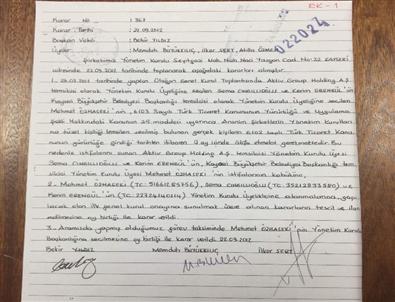 EK-1
022024
Karar No : 367
Karar Tarihi : 22.09.2012
Başkan Vekili : Bekir YILDIZ
Üyeler : Memduh BÜYÜKKILIÇ, İlker SERT,
Şirketimiz Yönetim Kurulu Nuh Naci Yazgan Cad. No:22 KAYSERİ
adresinde 22.09.2012 tarihinde toplanarak aşağıdaki kararları almıştır.
1. tarihinde yapılan Olağan Genel Kurul Toplantısında Aktiv Group Holding A.Ş.
temsilen olarak Yönetim Kurulu Üyeliğine seçilen Sema ve Kerim 'ün
Kayseri Büyükşehir Belediyesi Başkanlığı temsilcisi olarak Yönetim Kurulu Üyeliğine seçilen
Mehmet ÖZHASEKİ, 6103 Sayılı Türk Ticaret Kanununun Yürürlüğü ve Uygulama
Şekli Hakkındaki Kanunun 25. maddesi uyarınca Anonim Şirketlerin Yönetim Kurulları-
na tüzel kişiliği temsilen seçilmiş bulunan gerçek kişilerin 6102 sayılı Türk Ticaret Kanu-
nunun yürürlüğe girdiği tarihten itibaren üç ay içinde istifa etmeleri gerekmektedir. Bu
nedenle istifaları sunan Aktiv Group Holding A.Ş. temsilcileri Yönetim Kurulu Üyesi
Sema ve Kerim 'ün, Kayseri Büyükşehir Belediyesi Başkanlığı tem-
silcisi Yönetim Kurulu Üyesi Mehmet ÖZHASEKİ'nin istifalarının kabulüne,
2- Mehmet ÖZHASEKİ (TC: ), Sema (TC: ) ve
Kerim 'ün (TC: ) Yönetim Kurulu Üyeliklerine atanmalarına, yapı-
lacak olan ilk genel kurul onayına sunulmak üzere alınan kararların tescil ve ilan
edilmesine oy birliği ile karar verildi.
3. Aramızda yapmış olduğumuz görev taksiminde Mehmet ÖZHASEKİ'nin Yönetim Kurulu
Başkanlığına seçilmesine oy birliği ile karar verildi. 22.09.2012
Bekir YILDIZ Memduh BÜYÜKKILIÇ İlker SERT